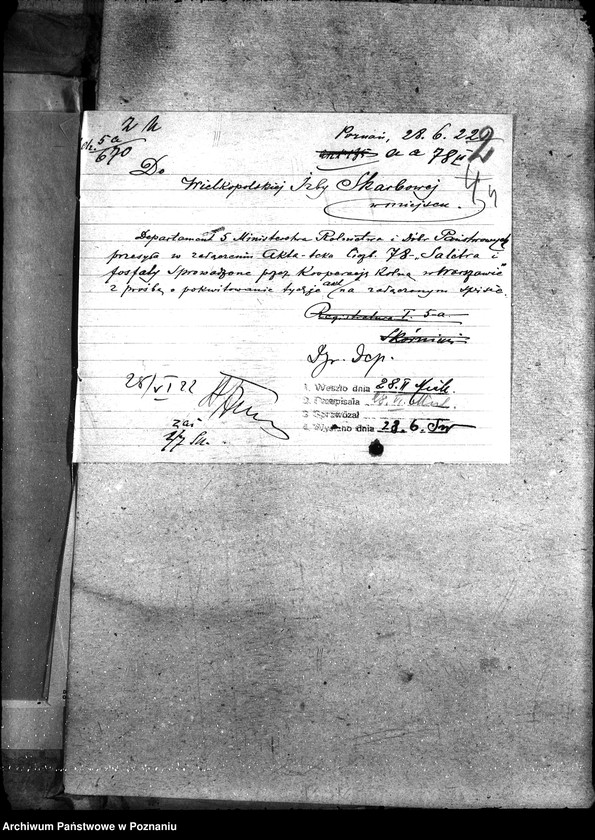 2 u
5 a
670
Poznań, 28. 6. 22
2
a a 78
Do
Wielkopolskiej Izby Skarbowej
w miejscu.
Departament 5 Ministerstwa Rolnictwa i Dóbr Państwowych
przesyła w załączeniu Akta-teka Ligb. 78 - Saletra i
fosfaty sprowadzone przez Kooperację Rolną w Warszawie"
z prośbą o pokwitowanie tychże akt na załączonym spisie.
Registratura I. 5a.
Dyr. Dep.
28/VI 22
1. Weszło dnia 28.
2. Przepisała
3 Sprawdzał
4. Wyszło dnia 28. 6.
zaś
2/7
Archiwum Państwowe w Poznaniu